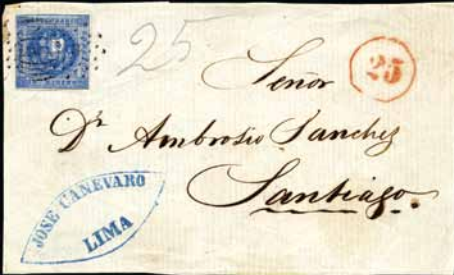 25
25
Señor
Dn Ambrosio Sanchez
Santiago.
JOSE CANEVARO
LIMA